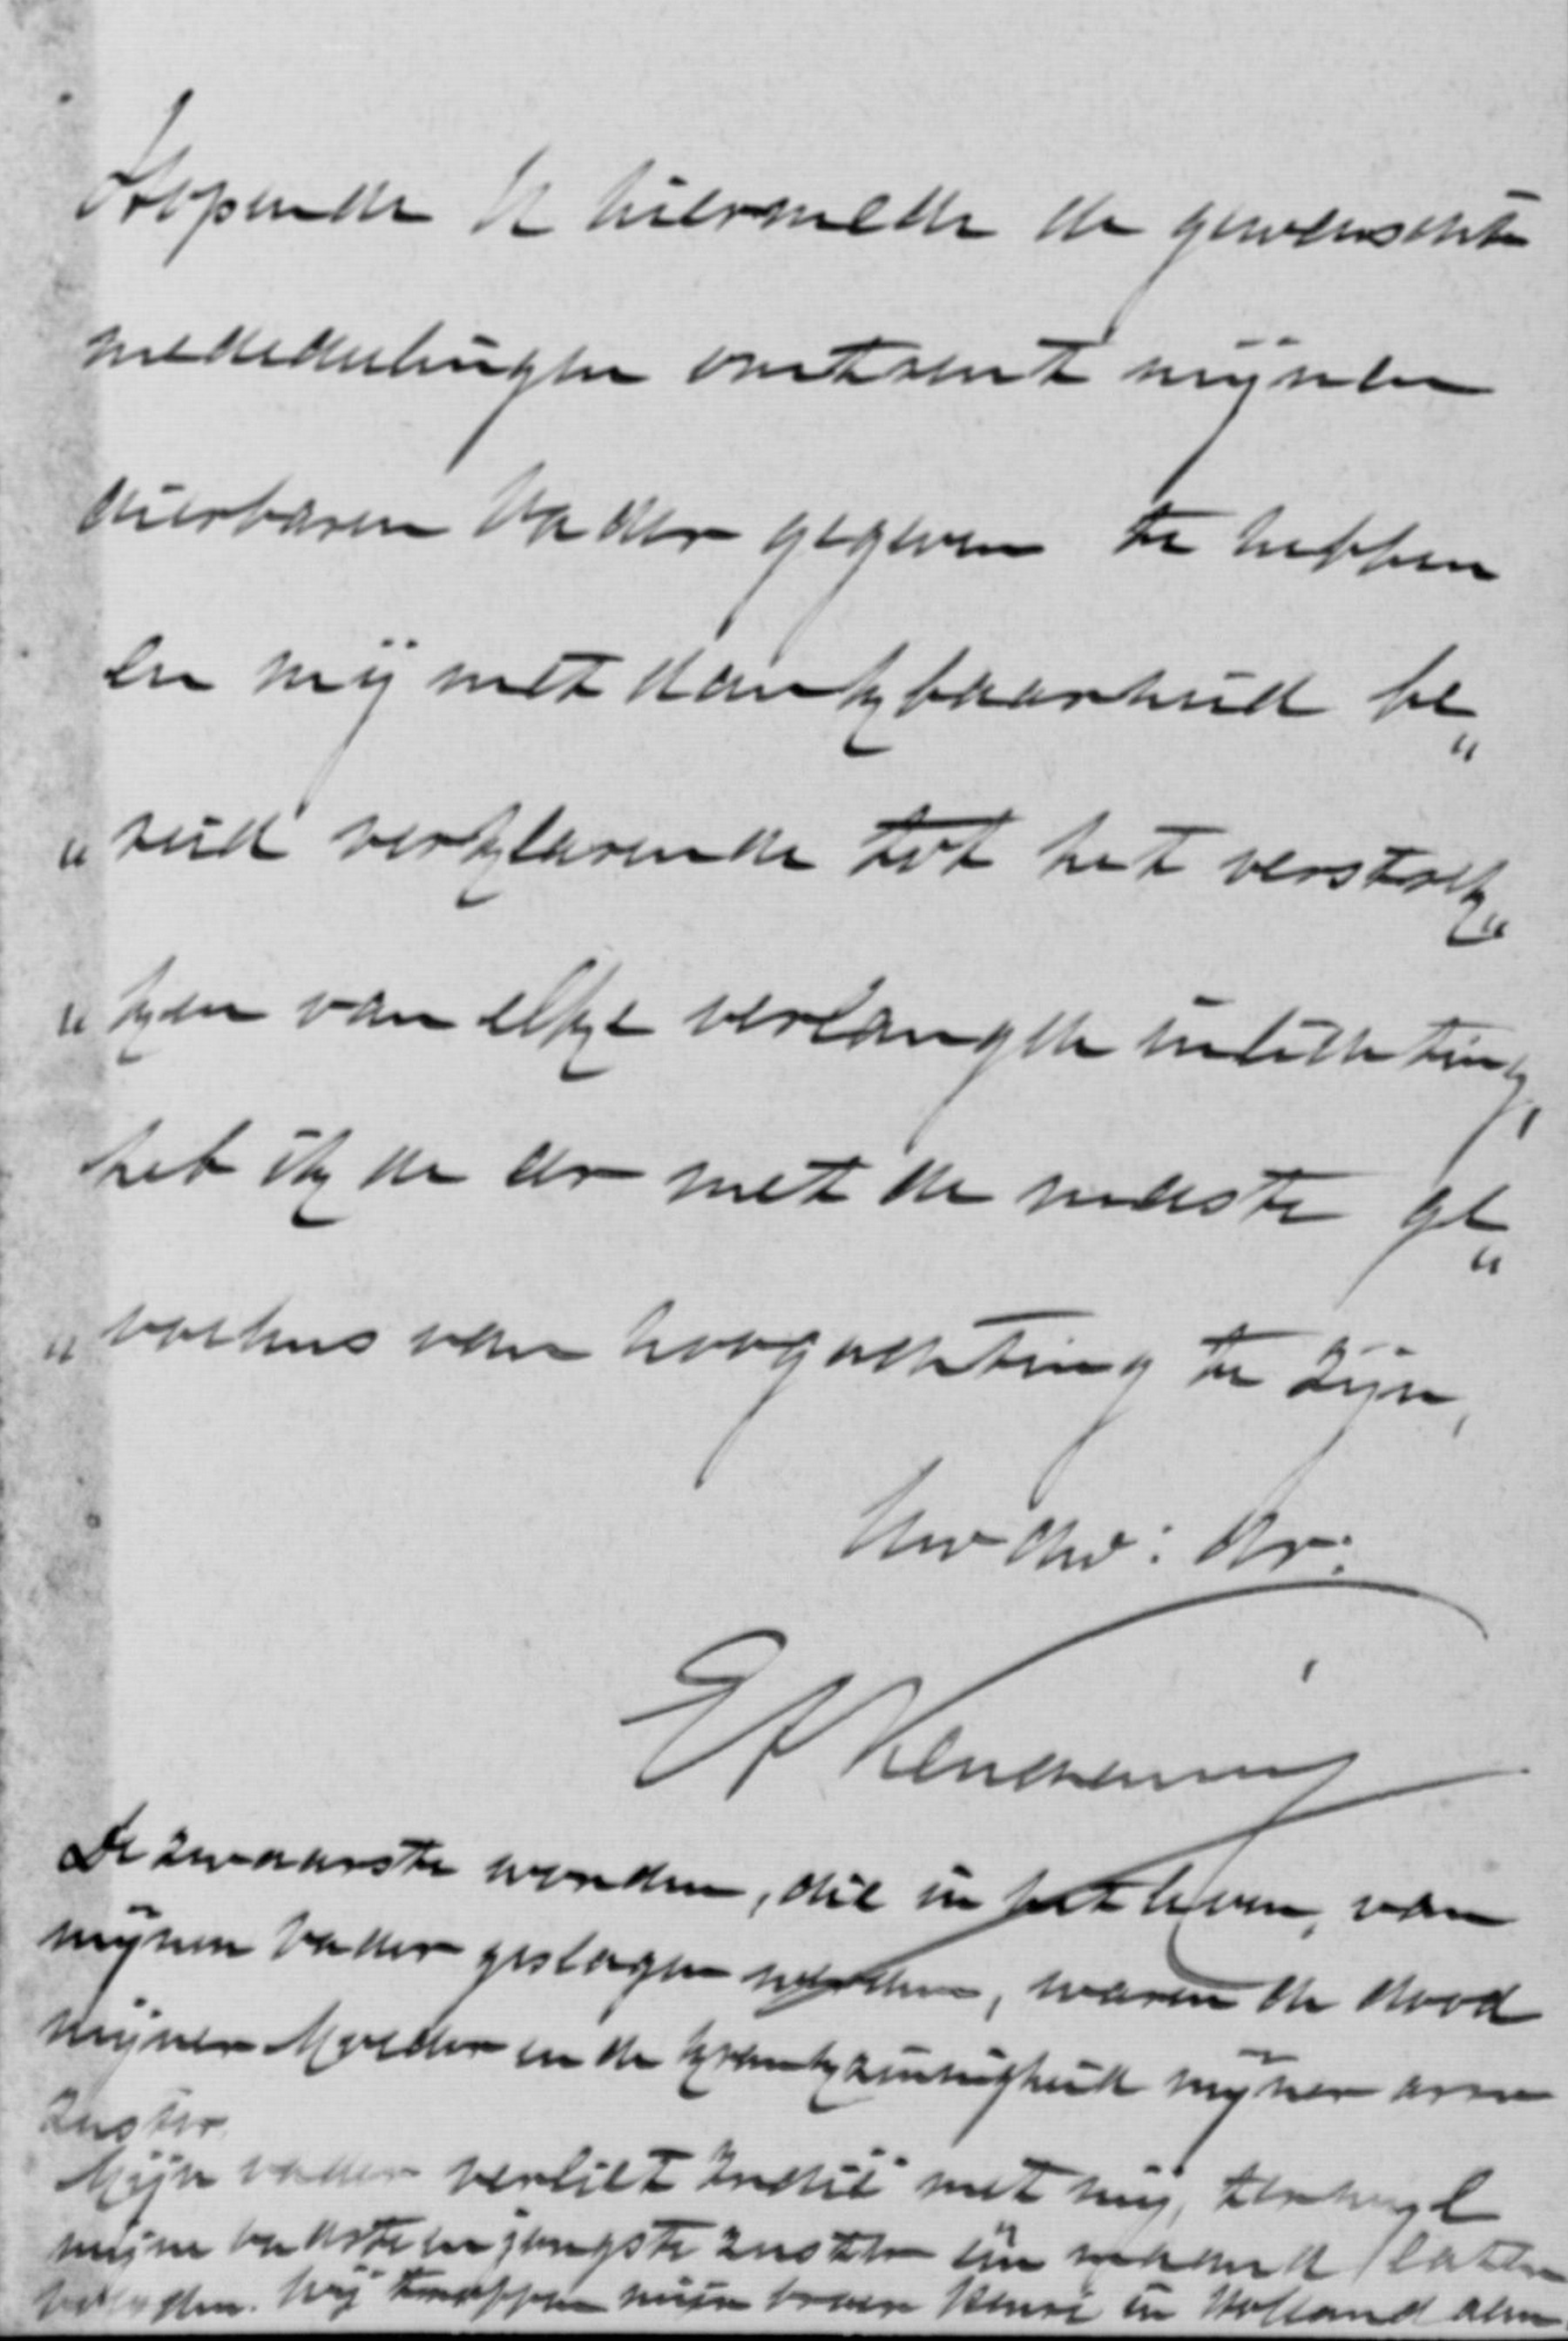 Hopende U hiermede de gewenschte
mededeelingen omtrent mijnen
dierbaren Vader gegeven te hebben
en mij met dankbaarheid be„
„reid verklarende tot het verstrek„
„ken van elke verlangde inlichting,
heb ik de eer met de meeste ge„
„voelens van hoogachting te zijn,
Uw dw: dr:
De zwaarste wonden, die in het leven, van
mijnen Vader geslagen werden, waren de dood
mijner Moeder en de krankzinnigheid mijner arme
Zuster.
Mijn vader verliet Indië met mij, terwijl
mijne oudste en jongste zuster één maand later
volgden. Wij troffen mijn broer Henri in Holland aan